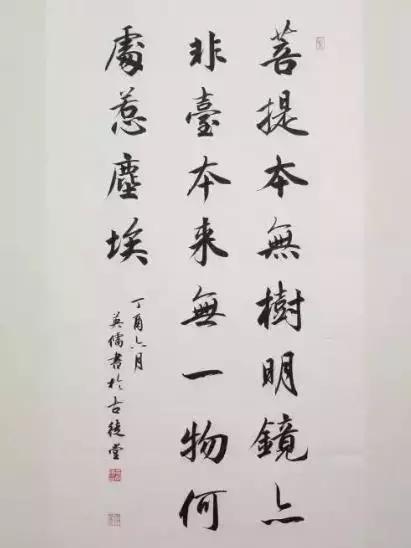 菩提本無樹明鏡亦
非臺本来無一物何
處惹塵埃
丁酉六月
英儒書於古堂